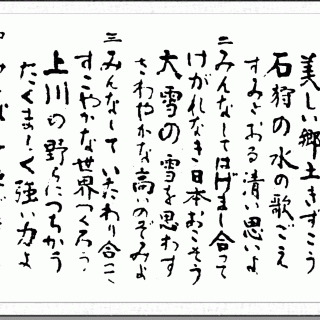 美しい郷土きずこう
石狩の水の歌ごえ
すみとおる清い思いよ
二 みんなしてはげまし合って
けがれなき日本おこそう
大雪の雪を思わす
さわやかな高いのぞみよ
三 みんなして いたわり合って
すこやかな世界つくろう
上川の野らにつちかう
たくましく強い力よ